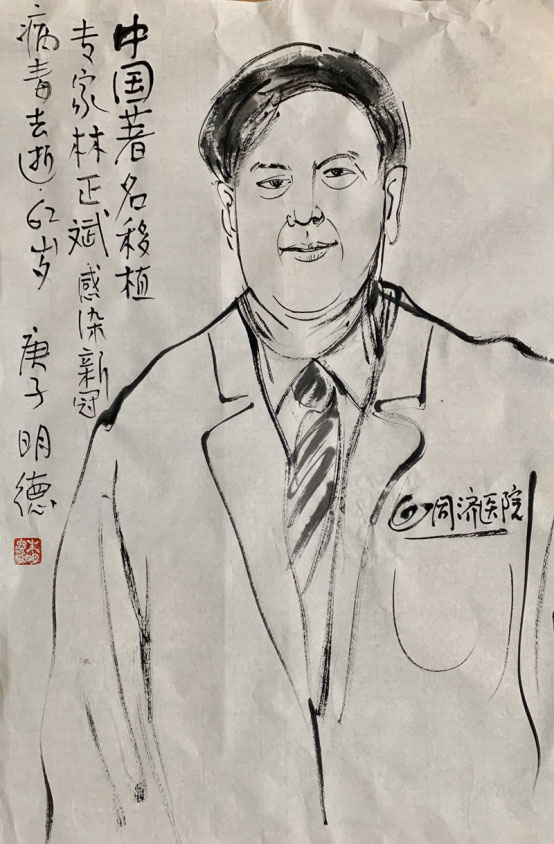 中国著名移植
专家林正斌感染新冠
病毒去逝.62岁
庚子明德
同济医院